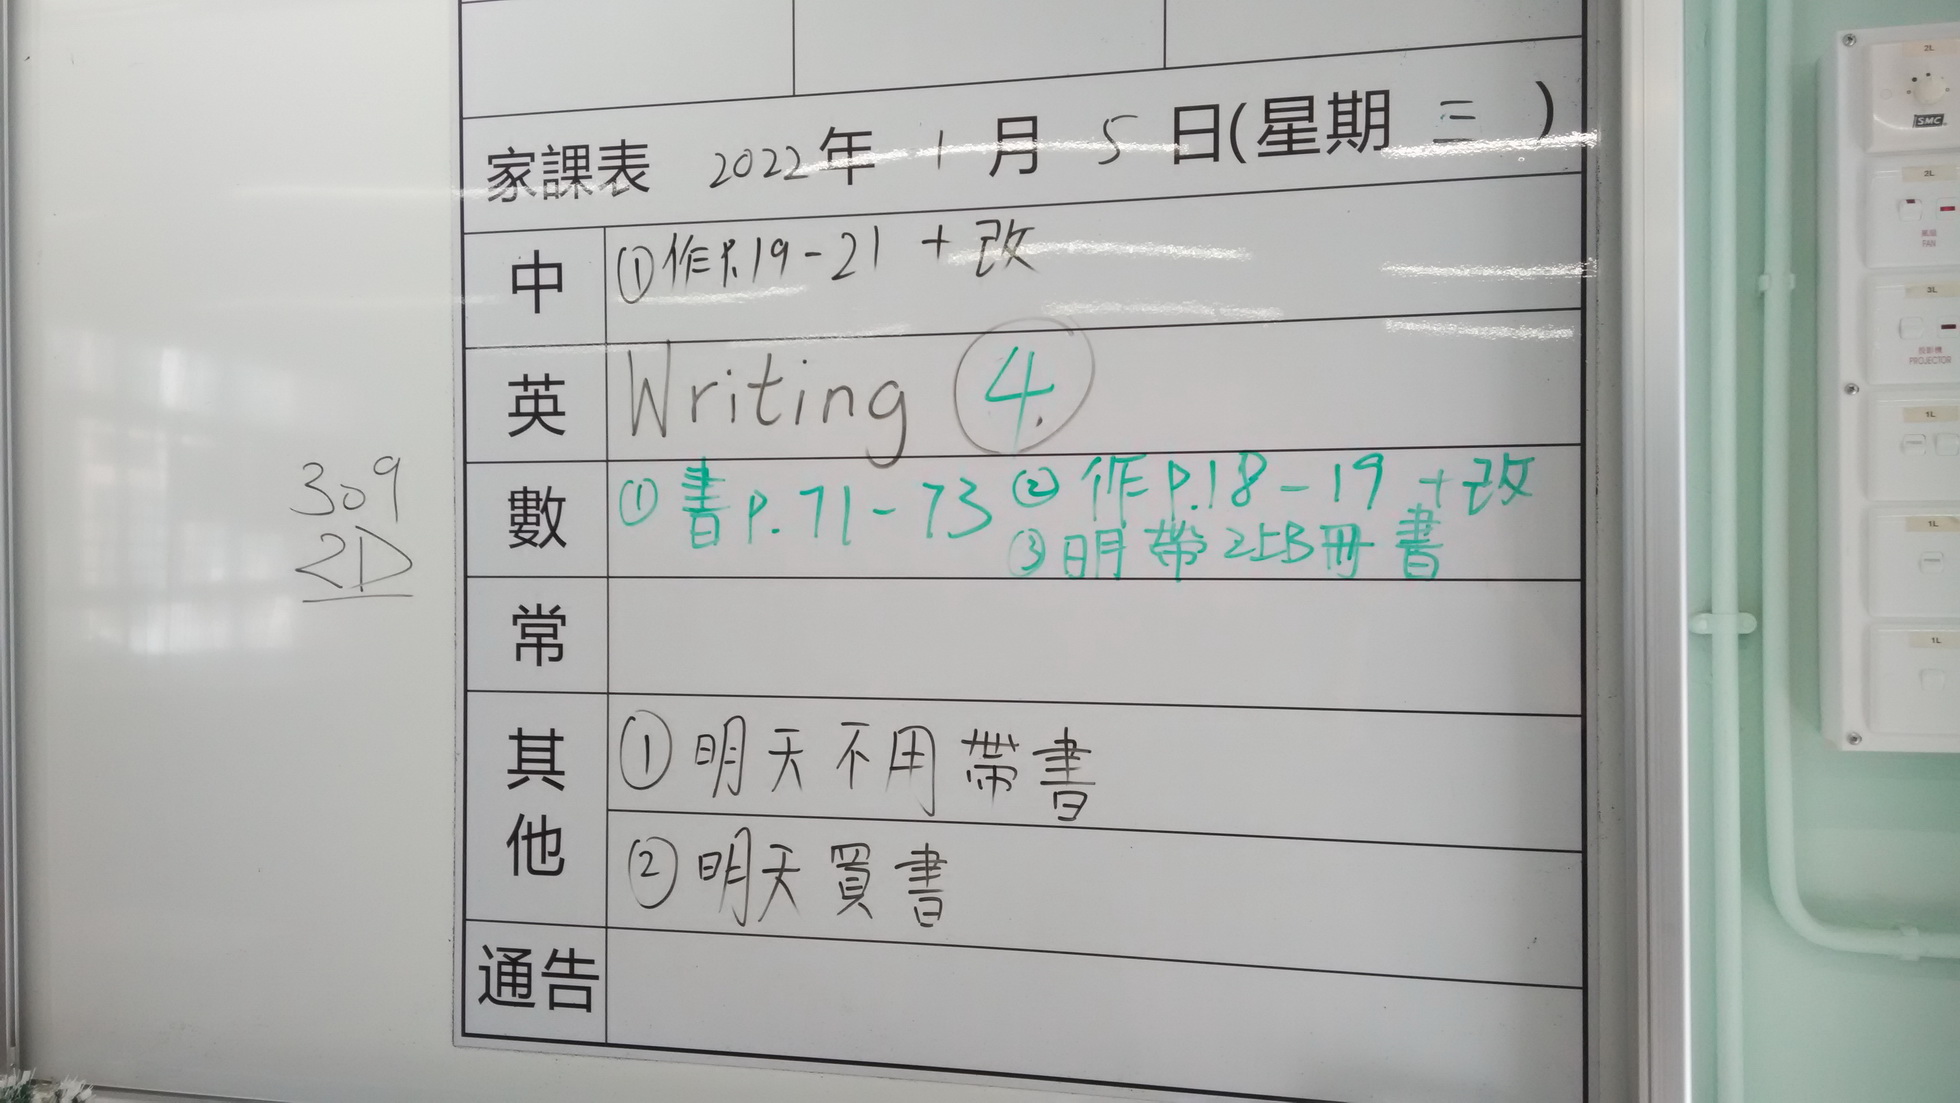 家課表 2022年 1月 5日(星期 三 )
中 ①作P.19-21 + 改
英 Writing ④.
數 ①書P.71-73 ②作P.18-19 +改
③明帶2上B冊書
常
其他 ①明天不用帶書
②明天買書
通告
309
2D
2L
SMC
2L
風扇
FAN
3L
投影機
PROJECTOR
1L
1L
1L